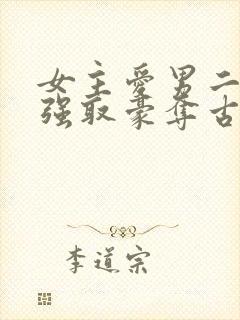 女主爱男二
强取豪夺古
李道宗